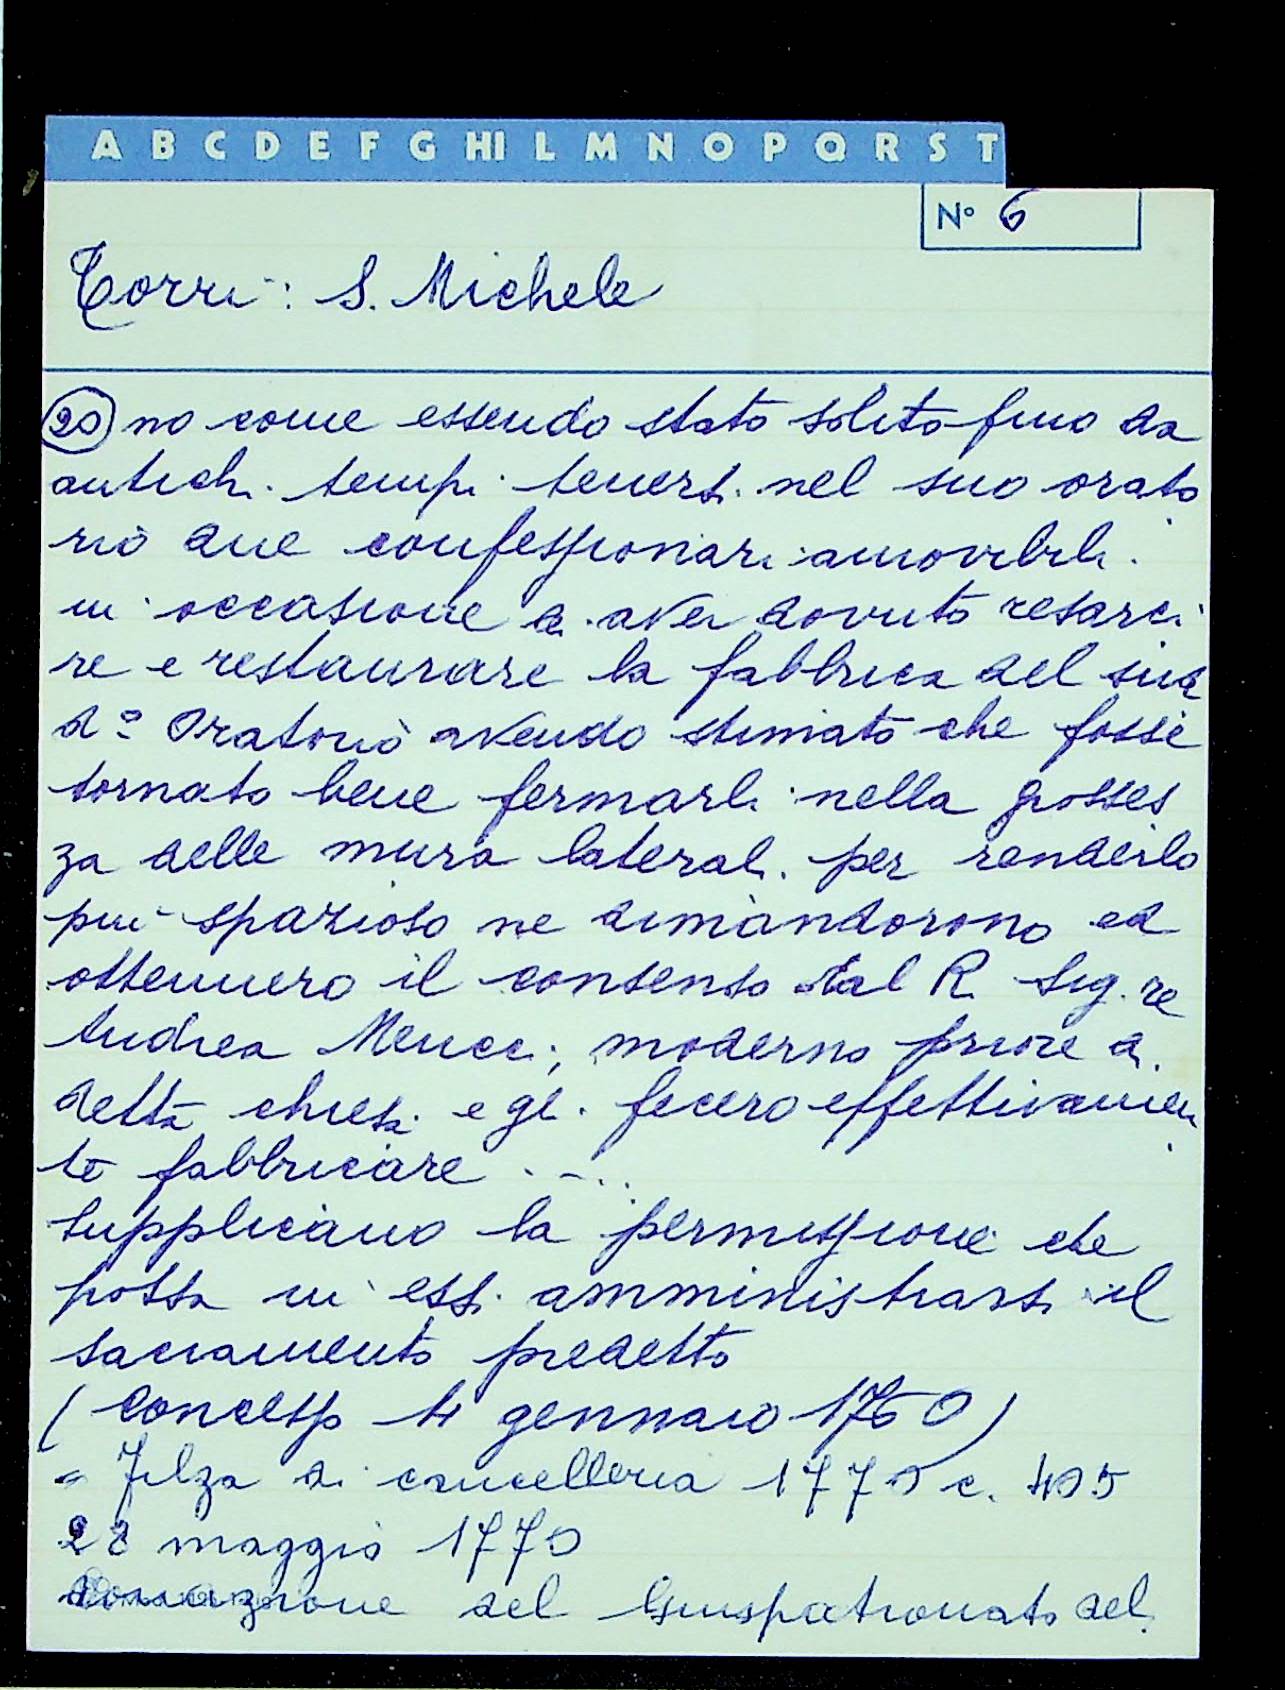 A B C D E F G HI L M N O P Q R S T
N° 6
Torri: S. Michele
20 no come essendo stato solito fino da
antichi tempi tenersi nel suo orato
rio due confessionari amovibili.
in occasione di aver dovuto resarci
re e restaurare la fabbrica del sud
d° Oratorio avendo stimato che fosse
tornato bene fermarli nella grosses
za delle mura laterali per renderlo
più spazioso ne dimandorono ed
ottennero il consenso dal R. Sig.re
Andrea Meucci, moderno priore di
detta chiesa e gli fecero effettivamen
te fabbricare .....
supplicano la permissione che
possa in essi amministrarsi il
sacramento predetto
(Concesso 4 gennaio 1760)
= Filza di cancelleria 1770 c. 405
28 maggio 1770
donazione del Giuspatronato del